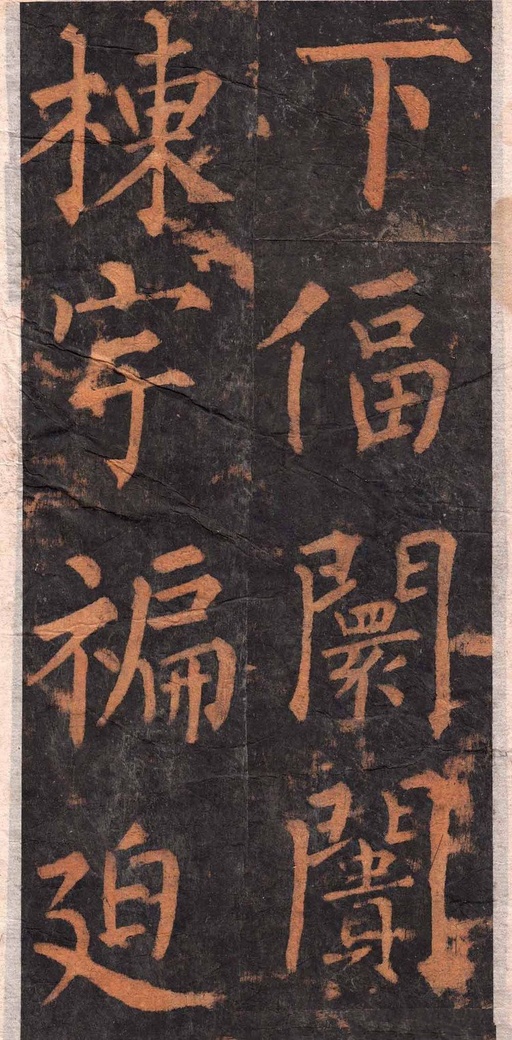 下偪闤闠
棟宇褊迫